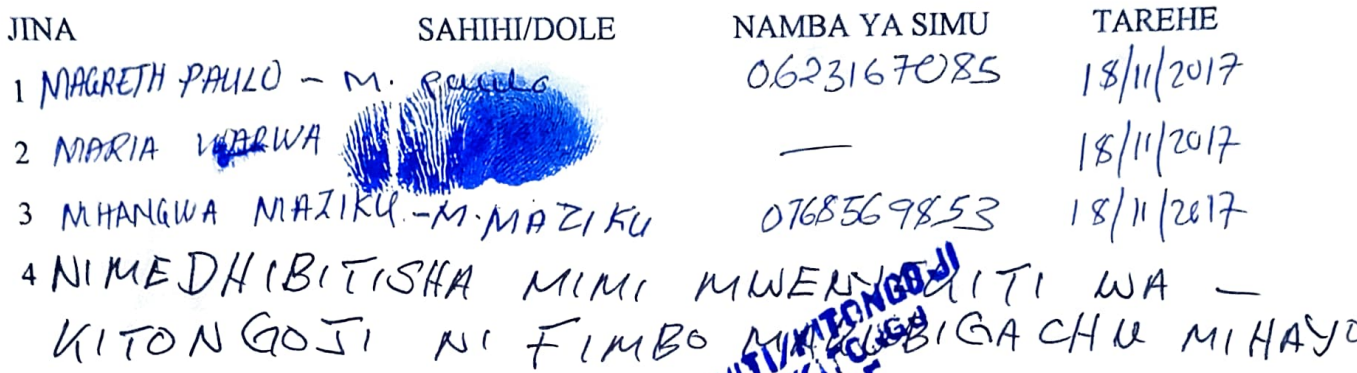 JINA SAHIHI/DOLE NAMBA YA SIMU TAREHE
1 MAGRETH PAULO - M. Paulo 0623167085 18/11/2017
2 MARIA — 18/11/2017
3 MHANGWA MAZIKU - M. MAZIKU 0768569853 18/11/2017
4 NIMEDHIBITISHA MIMI MWENYEKITI WA —
KITONGOJI NI FIMBO MIHAYO